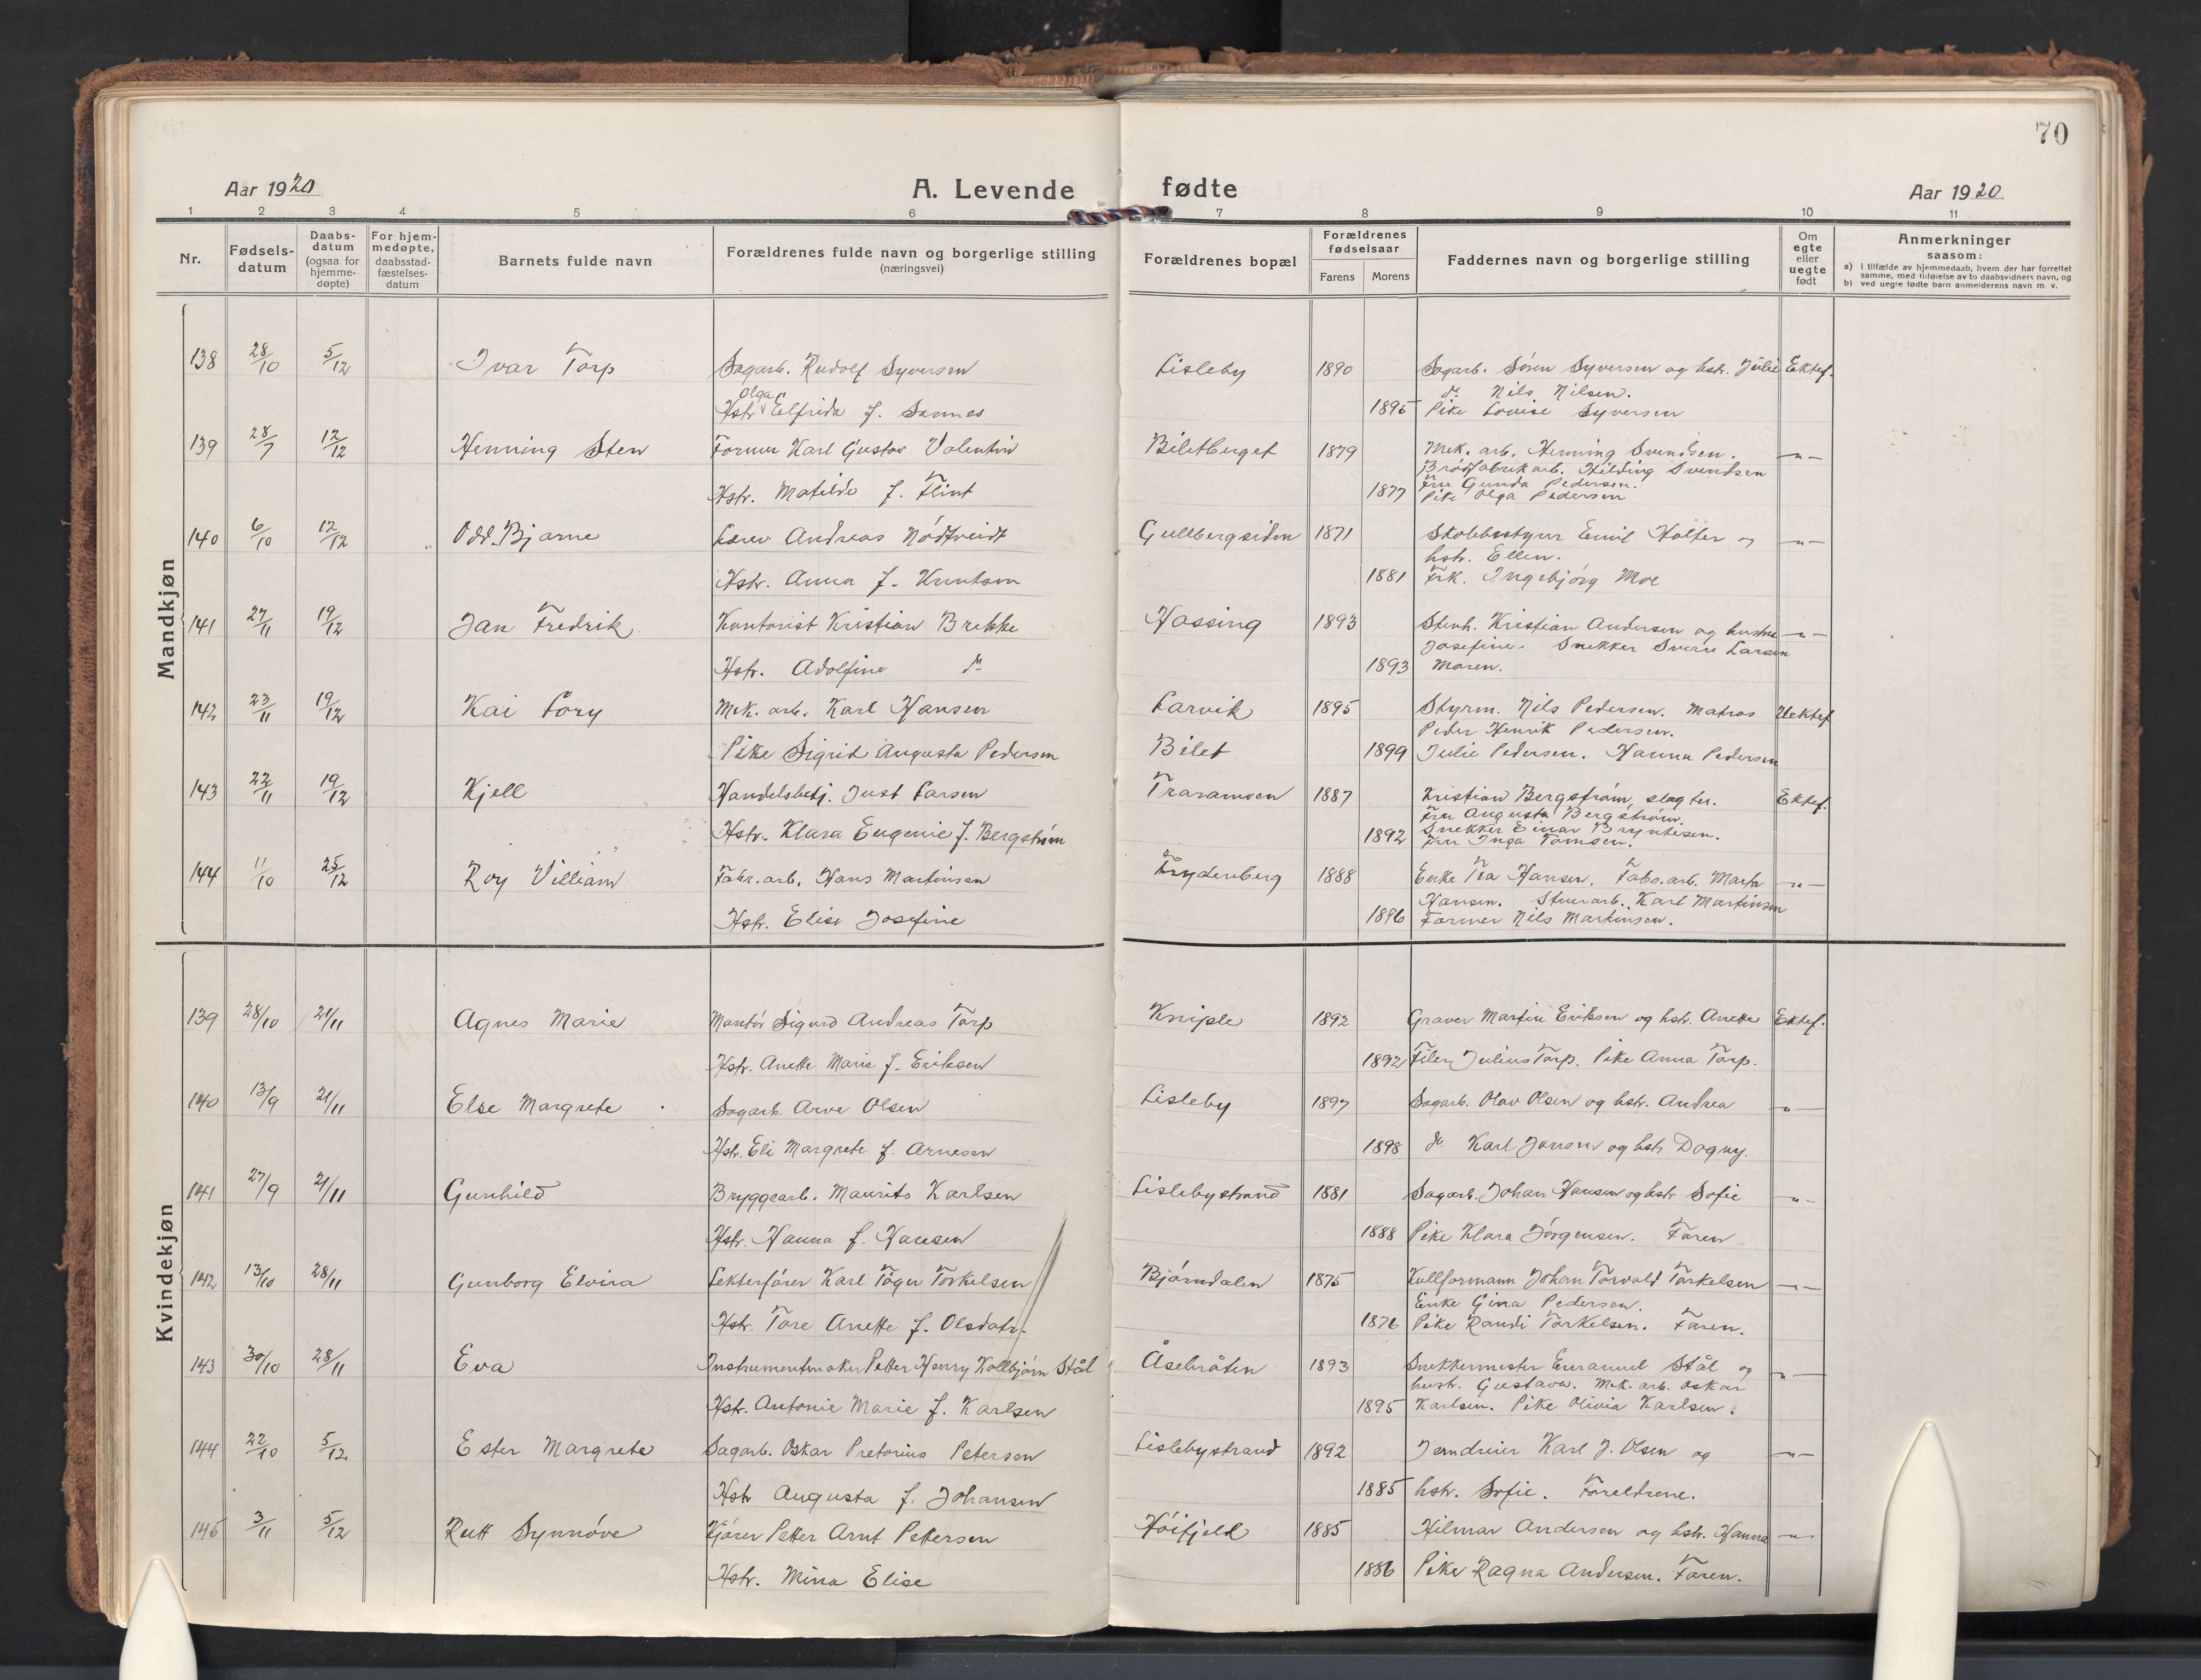 70
Aar 1920
A. Levende fødte
Aar 1920
1 2 3 4 5 6 7 8 9 10 11
Nr.
Fødselsdatum
Daabsdatum (ogsaa for hjemmedøpte)
For hjemmedøpte, daabsstadfæstelsesdatum
Barnets fulde navn
Forældrenes fulde navn og borgerlige stilling (næringsvei)
Forældrenes bopæl
Forældrenes fødselsaar
Farens Morens
Faddernes navn og borgerlige stilling
Om egte eller uegte født
Anmerkninger saasom:
a) I tilfælde av hjemmedaab, hvem der har forrettet samme, med tilføielse av to daabsvidners navn, og
b) ved uegte fødte barn anmelderens navn m. v.
Mandkjøn
138 28/10 5/12 Ivar Torp Sagarb. Rudolf Syversen Lisleby 1890 Sagarb. Søren Syversen og hstr. Julie Ektef.
do Nils Nilsen.
Hstr Olga Elfrida f. Sannes 1895 Pike Lovise Syversen
139 28/7 12/12 Henning Sten Former Karl Gustav Valentin Biletberget 1879 Mek. arb. Henning Svendsen. -"-
Brødfabrikarb. Hilding Svendsen
Fru Gunda Pedersen.
Hstr. Matilde f. Flint 1877 Pike Olga Pedersen
140 6/10 12/12 Odd. Bjarne Lærer Andreas Nødtveidt Gullbergsiden 1871 Emil Holter og -"-
hstr. Ellen.
Hstr. Anna f. Knutson 1881 Frk. Ingebjørg Moe
141 27/11 19/12 Jan Fredrik Kontorist Kristian Brekke Hassing 1893 Stenh. Kristian Andersen og hustru -"-
Josefine. Snekker Sverre Larsen
Hstr. Adolfine do 1893 Moren.
142 23/11 19/12 Kai Lory Mek. arb. Karl Hansen Larvik 1895 Styrm. Nils Pedersen. Matros Uektef
Peder Henrik Pedersen.
Pike Sigrid Augusta Pedersen Bilet 1899 Julie Pedersen. Hanna Pedersen
143 22/11 19/12 Kjell Handelsbetj. Just Larsen Traramoen 1887 Kristian Bergstrøm, slagter. Ektef.
Fru Augusta Bergstrøm.
Snekker Einar Bryntesen.
Hstr. Klara Eugenie f. Bergstrøm 1892 Fru Inga Tomsen.
144 11/10 25/12 Roy Villiam Fabr. arb. Hans Martinsen Frydenberg 1888 Enke Tea Hansen. Fabr. arb. Marta -"-
Hansen. Stuerarb. Karl Martinsen
Hstr. Elise Josefine 1896 Former Nils Martinsen.
Kvindekjøn
139 28/10 21/11 Agnes Marie Montør Sigurd Andreas Torp Kniple 1892 Graver Martin Eriksen og hstr. Anette Ektef.
Hstr. Anette Marie f. Eriksen 1892 Filer Julius Torp. Pike Anna Torp.
140 13/9 21/11 Else Margrete Sagarb. Arve Olsen Lisleby 1897 Sagarb. Olav Olsen og hstr. Andrea -"-
Hstr. Eli Margrete f. Arnesen 1898 do Karl Jansen og hstr Dagny.
141 27/9 21/11 Gunhild Bryggearb. Maurits Karlsen Lislebystrand 1881 Sagarb. Johan Hansen og hstr Sofie -"-
Hstr. Hanna f. Hansen 1888 Pike Klara Jørgensen. Faren
142 13/10 28/11 Gunborg Elvira Lekterfører Karl Töger Torkelsen Bjørndalen 1875 Kullformann Johan Torvald Torkelsen -"-
Enke Gina Pedersen.
Hstr. Tore Anette f. Olsdatr. 1876 Pike Randi Torkelsen. Faren.
143 30/10 28/11 Eva Instrumentmaker Petter Henry Kollbjørn Stål Åsebråten 1893 Snekkermester Emanuel Stål og -"-
hustr. Gustava. Mek. arb. Oskar
Hstr. Antonie Marie f. Karlsen 1895 Karlsen. Pike Olivia Karlsen.
144 22/10 5/12 Ester Margrete Sagarb. Oskar Pretorius Petersen Lislebystrand 1892 Jerndreier Karl J. Olsen og -"-
Hstr Augusta f. Johansen 1885 hstr. Sofie. Foreldrene.
145 3/11 5/12 Rutt Synnøve Kjører Petter Arnt Pettersen Höifjeld 1885 Hilmar Andersen og hstr. Hanna -"-
Hstr. Mina Elise 1886 Pike Ragna Andersen. Faren.